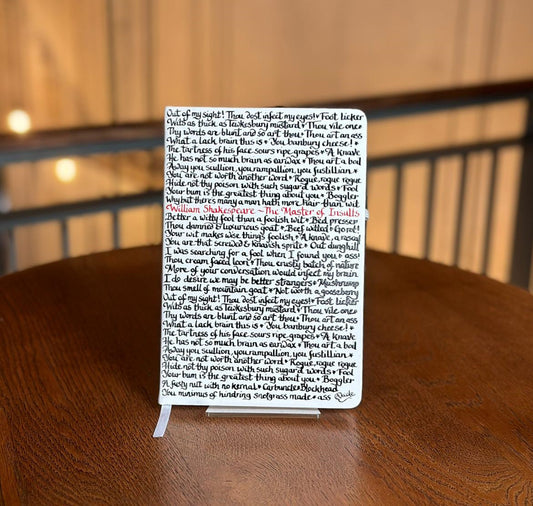 Out of my sight! Thou dost infect my eyes! • Foot licker
Wits as thick as Tewkesbury mustard • Thou vile one •
Thy words are blunt and so art thou • Thou art an ass
What a lack brain this is • You banbury cheese! •
The tartness of his face sours ripe grapes • A Knave
He has not so much brain as earwax • Thou art a boil
Away you scullion, you rampallion, you fustillian •
You are not worth another word • Rogue, rogue rogue
Hide not thy poison with such sugar'd words • Fool
Your bum is the greatest thing about you • Boggler
Why but there's many a man hath more hair than wit
William Shakespeare ~ The Master of Insults
Better a witty fool than a foolish wit • Bed presser
Thou damned & luxurious goat • Beef witted • Go rot!
Your wit makes wise things foolish • A knave, a rascal
You are that screwed & knavish sprite • Out dunghill
I was searching for a fool when I found you • ass
Thou cream faced loon • Thou crusty batch of nature
More of your conversation would infect my brain
I do desire we may be better strangers • Mushrump
Thou smell of mountain goat • Not worth a gooseberry
Out of my sight! Thou dost infect my eyes! • Foot licker
Wits as thick as Tewkesbury mustard • Thou vile one
Thy words are blunt and so art thou • Thou art an ass
What a lack brain this is • You banbury cheese! •
The tartness of his face sours ripe grapes • A Knave
He has not so much brain as earwax • Thou art a boil
Away you scullion, you rampallion, you fustillian •
You are not worth another word • Rogue, rogue rogue
Hide not thy poison with such sugar'd words • Fool
Your bum is the greatest thing about you • Boggler
A fusty nut with no kernal • Carbuncle • Blockhead
You minimus of hindring knotgrass made • ass